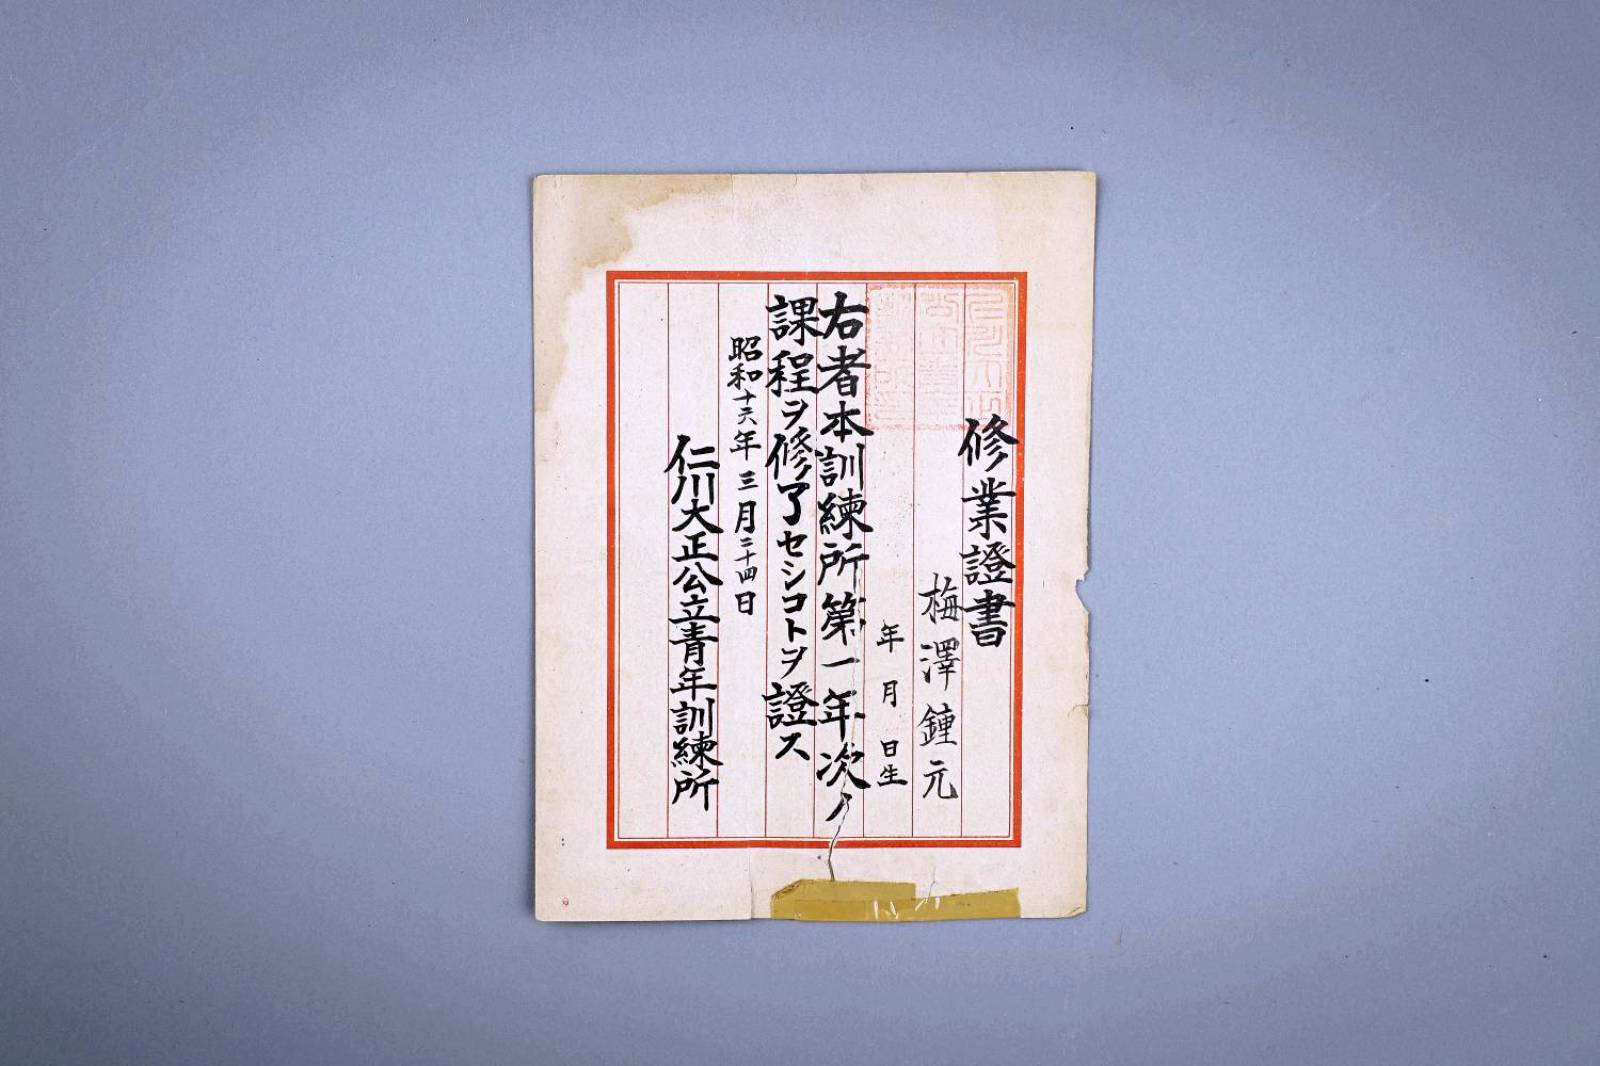 修業證書
梅澤鍾元
年月日生
右者本訓練所第一年次ノ
課程ヲ修了セシコトヲ證ス
昭和十六年三月二十四日
仁川大正公立青年訓練所